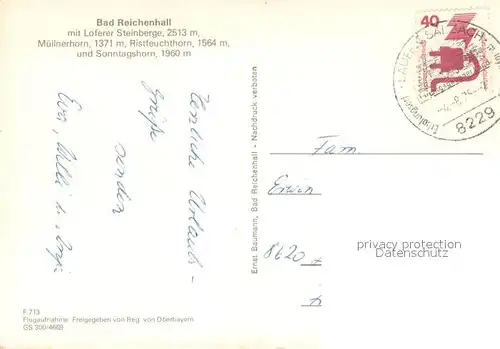 Bad Reichenhall
mit Loferer Steinberge, 2513 m,
Müllnerhorn, 1371 m, Ristfeuchthorn, 1564 m,
und Sonntagshorn, 1960 m
Herzliche Urlaubs-
grüße
senden
Eva, Willi u.
F 713
Flugaufnahme: Freigegeben von Reg. von Oberbayern
GS 300/4669
Ernst Baumann, Bad Reichenhall - Nachdruck verboten
40
LAUFEN, SALZACH
Erholungsort
8229
Fam.
Erwin
8620
privacy protection
watermark